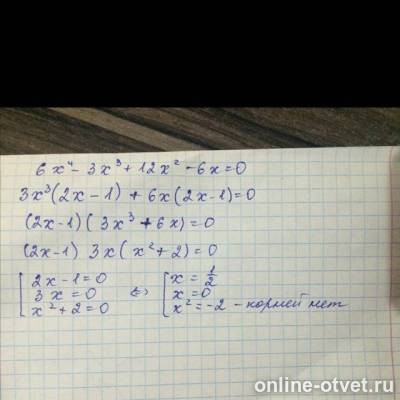 6x⁴ - 3x³ + 12x² - 6x = 0
3x³(2x - 1) + 6x(2x - 1) = 0
(2x - 1)(3x³ + 6x) = 0
(2x - 1) 3x(x² + 2) = 0
[ 2x - 1 = 0 ⇔ [ x = 1/2
3x = 0 x = 0
x² + 2 = 0 x² = -2 - корней нет
online-otvet.ru